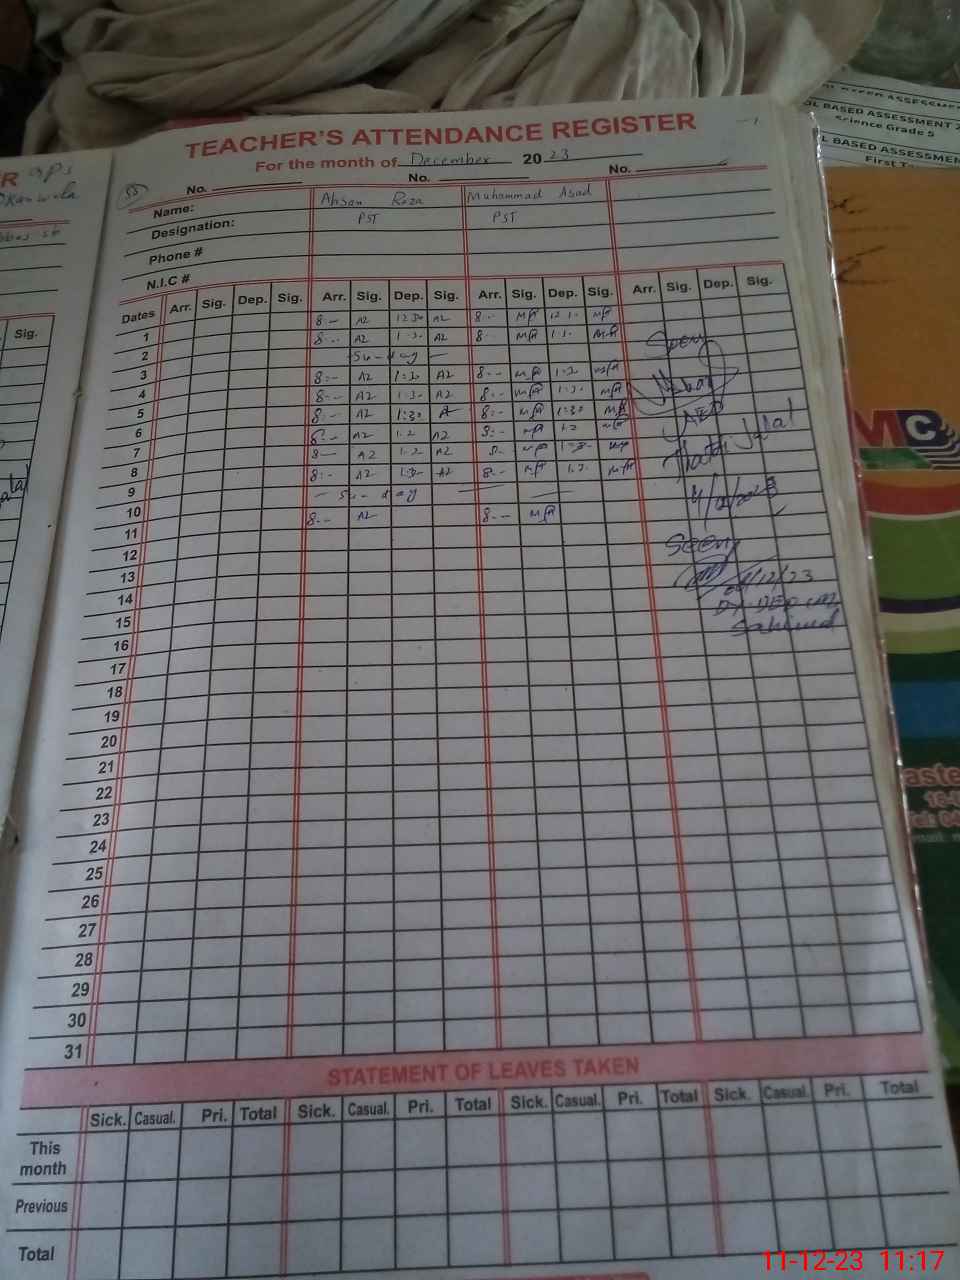 TEACHER'S ATTENDANCE REGISTER
For the month of December 2023
No. No. No.
Name: Ahsan Raza Muhammad Asad
Designation: PST PST
Phone #
N.I.C #
Dates Arr. Sig. Dep. Sig. Arr. Sig. Dep. Sig. Arr. Sig. Dep. Sig. Arr. Sig. Dep. Sig.
1 8:-- AZ 12:30 AZ 8:-- MA MA
2 8:-- AZ 1:30 AZ 8:-- MA MA
3 Sunday
4 8:-- AZ 1:30 AZ 8:-- MA 1:30 MA
5 8:-- AZ 1:30 AZ 8:-- MA 1:30 MA
6 8:-- AZ 1:30 8:-- MA 1:30 MA
7 8:-- AZ AZ 8:-- MA MA
8 8:-- AZ AZ 8:-- MA
9 8:-- AZ 1:30 AZ 8:-- MA MA
10 Sunday
11 8:-- AZ 8:-- MA
12
13
14
15
16
17
18
19
20
21
22
23
24
25
26
27
28
29
30
31
Seen
AEO
Jalal
Seen
12/23
Dy. DEO
Sahiwal
STATEMENT OF LEAVES TAKEN
Sick. Casual. Pri. Total Sick. Casual. Pri. Total Sick. Casual. Pri. Total Sick. Casual. Pri. Total
This
month
Previous
Total
R
Sig.
BASED ASSESSMENT
Science Grade 5
BASED ASSESSMENT
First
MC
11-12-23 11:17